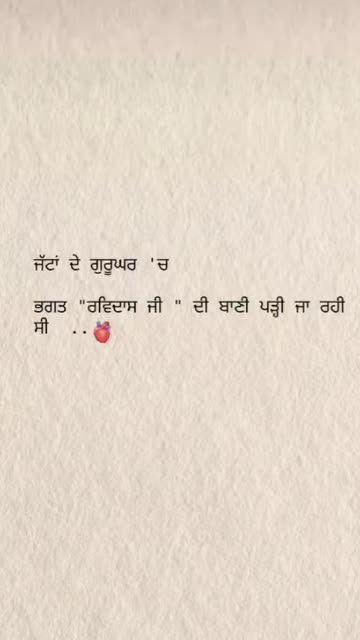 ਜੱਟਾਂ ਦੇ ਗੁਰੂਘਰ 'ਚ
ਭਗਤ "ਰਵਿਦਾਸ ਜੀ " ਦੀ ਬਾਣੀ ਪੜ੍ਹੀ ਜਾ ਰਹੀ
ਸੀ ..🫀